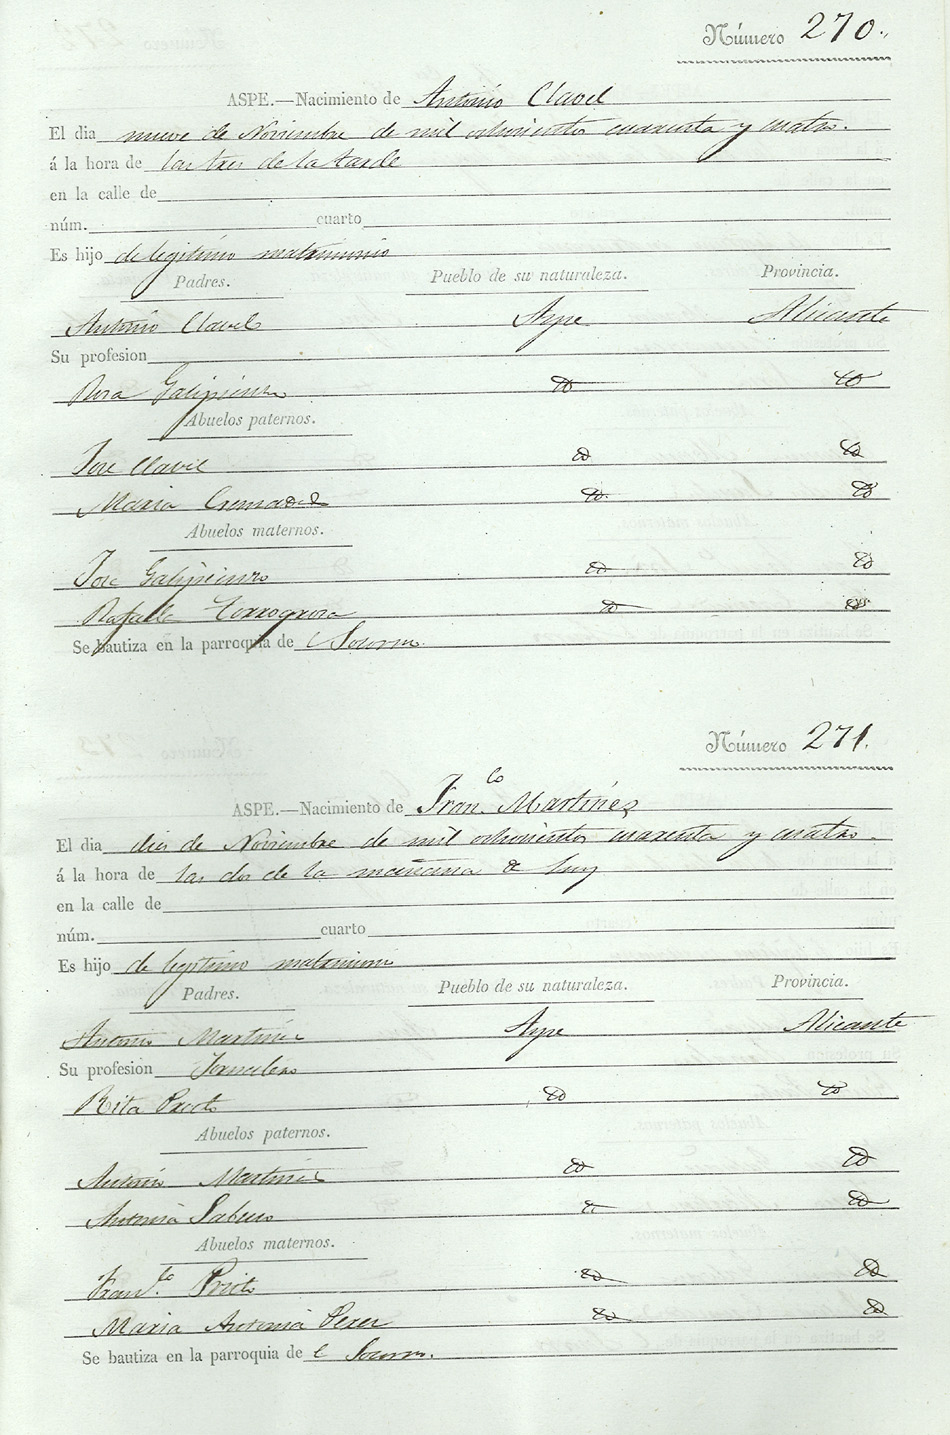 Número 270.
ASPE.—Nacimiento de Antonio Clavel
El dia nueve de Noviembre de mil ochocientos cuarenta y cuatro.
á la hora de las tres de la tarde
en la calle de
núm. cuarto
Es hijo de legitimo matrimonio
Padres. Pueblo de su naturaleza. Provincia.
Antonio Clavel Aspe Alicante
Su profesion
Rosa Galipienso
Abuelos paternos.
Jose Clavel
Maria Cremades
Abuelos maternos.
Jose Galipienso
Rafaela Torregrosa
Se bautiza en la parroquia de
Número 271.
ASPE.—Nacimiento de Fran.co Martinez
El dia diez de Noviembre de mil ochocientos cuarenta y cuatro.
á la hora de las dos de la mañana de hoy
en la calle de
núm. cuarto
Es hijo de legitimo matrimonio
Padres. Pueblo de su naturaleza. Provincia.
Antonio Martinez Aspe Alicante
Su profesion Jornalero
Rita Prieto
Abuelos paternos.
Antonio Martinez
Antonia
Abuelos maternos.
Fran.co Prieto
Maria Antonia Perez
Se bautiza en la parroquia de